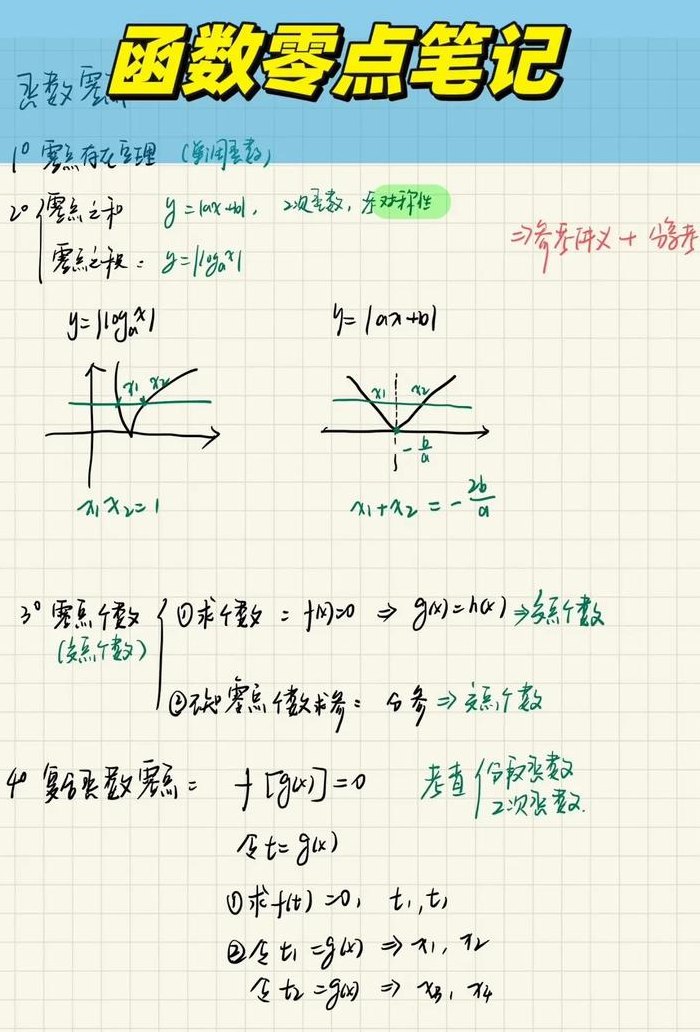 函数零点笔记
函数零点
1° 零点存在定理 (单调函数)
2° 零点之和 y=|ax+b|, 2次函数, 对称性
零点之积: y=|logₐx|
⇒参考讲义 +
y=|logₐx| y=|ax+b|
x₁ x₂ x₁ x₂
-b/a
x₁x₂=1 x₁+x₂=-2b/a
3° 零点个数 ①求个数: f(x)=0 ⇒ g(x)=h(x) ⇒交点个数
(交点个数)
②已知零点个数求参: 分参 ⇒ 交点个数
4° 复合函数零点: f[g(x)]=0 考查 分段函数
2次函数.
令t=g(x)
①求f(t)=0, t₁,t₁
②令t₁=g(x) ⇒ x₁, x₂
令t₂=g(x) ⇒ x₃, x₄